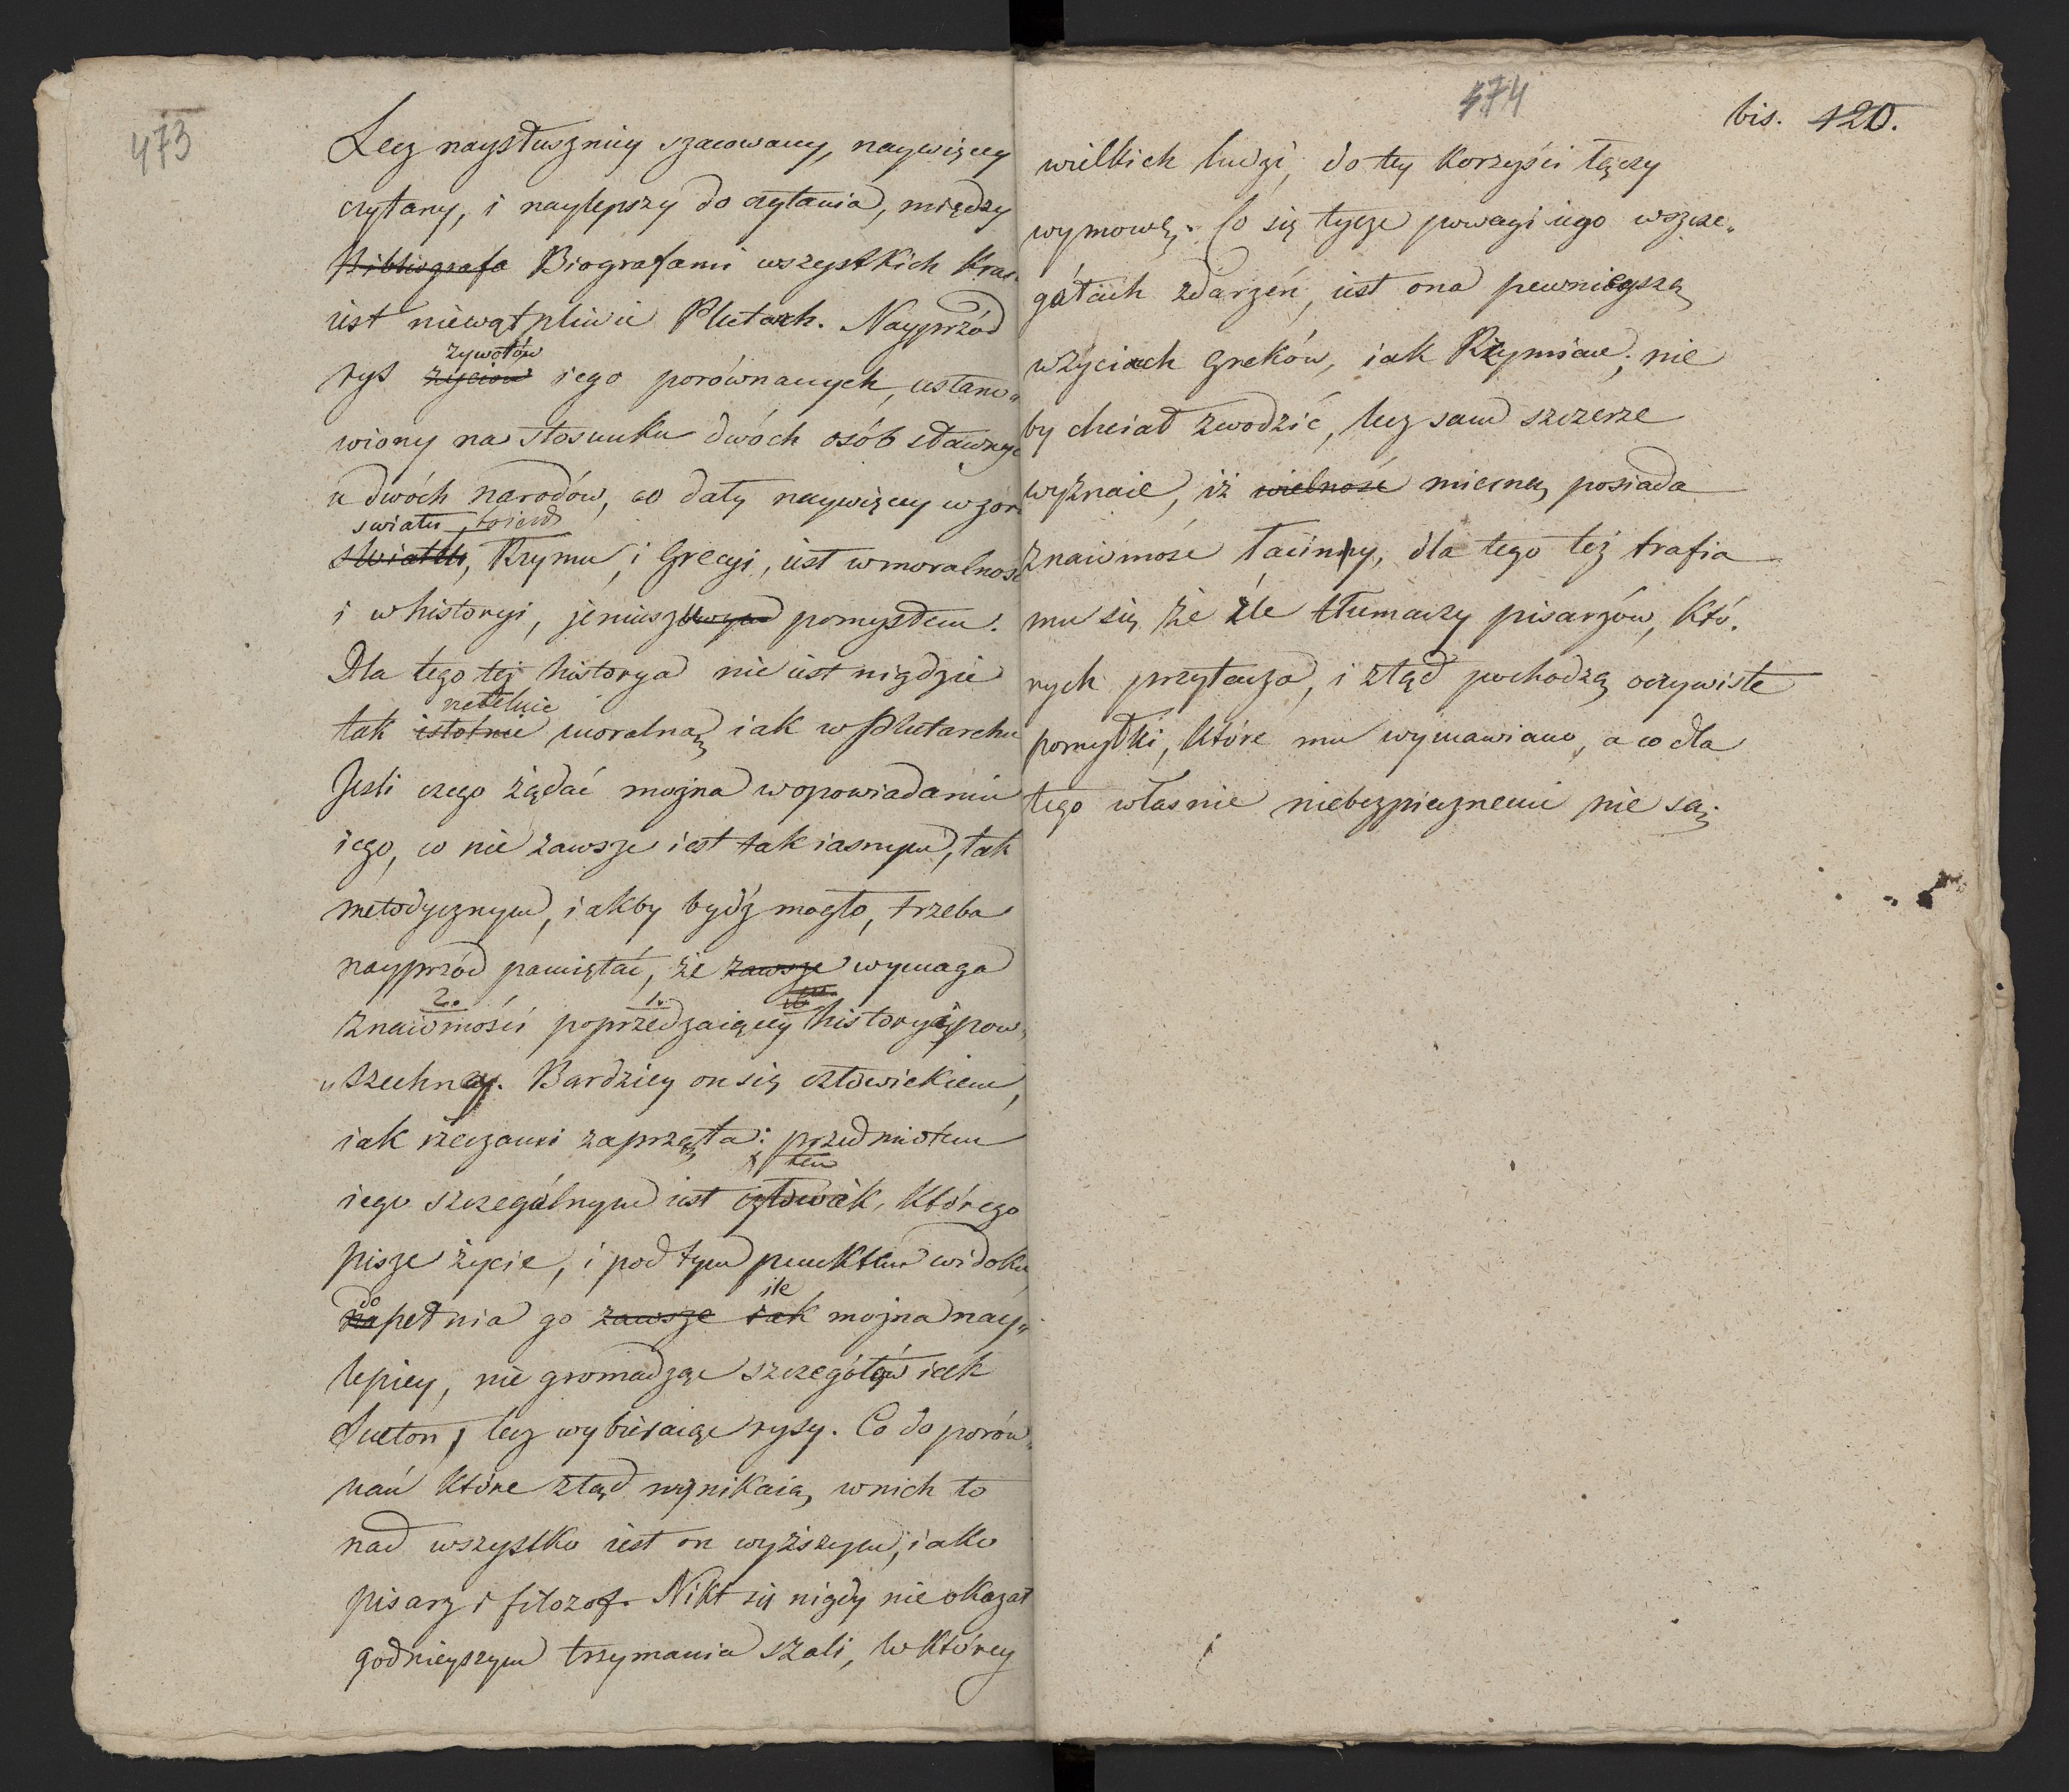 473
Lecz naysłuszniey szacowany, naywięcey
czytany, i naylepszy do czytania, między
Bibliografa Biografami wszystkich kra-
iest niewątpliwie Plutarch. Nayprzód
żywotów
rys życiow iego porównanych, ustano„
wiony na stosunku dwóch osób sławnyc
u dwóch narodów, co dały naywięcey wzór
swiatu
swiatu, Rzymu, i Grecyi, iest w moralnosc
i w historyi, jeniuszowym pomysłem.
Dla tego też historya nie iest nigdzie
rzetelnie
tak istotnie moralną iak w Plutarchu
Jesli czego żądać można w opowiadaniu
iego, co nie zawsze iest tak iasnym, tak
metodycznym, iakby bydź mogło, trzeba
nayprzód pamiętać, że zawsze wymaga
2. 1.
znaiomości poprzedzaiącey history pow„
„szechney. Bardziey on się człowiekiem,
iak rzeczami zaprząta: przedmiotem
ten
iego szczegulnym iest człowiek, którego
pisze życie, i pod tym punktem widoku
do ile
napełnia go zawsze iak można nay„
lepiey, nie gromadząc szczegółów iak
Sueton, lecz wybieraiąc rysy. Co do porów„
nań które ztąd wynikaią, w nich to
nad wszystko iest on wyższym, iako
pisarz i filozof. Nikt się nigdy nie okazał
godnieyszym trzymania szali, w którey
474
bis. 420.
wielkich ludzi, do tey korzyści łączy
wymowę. Co się tycze powagi iego w szcze„
gółach zdarzeń, iest ona pewnieyszą
w życiach Greków, iak Rzymian; nie
by chciał zwodzić, lecz sam szczerze
wyznaie, iż wielnosc mierną posiada
znaiomosc łaciny, dla tego też trafia
mu się że źle tłumaczy pisarzów, któ.
rych przytacza, i ztąd pochodzą oczywiste
pomyłki, które mu wymawiano, a co dla
tego własnie niebezpiecznemi nie są.